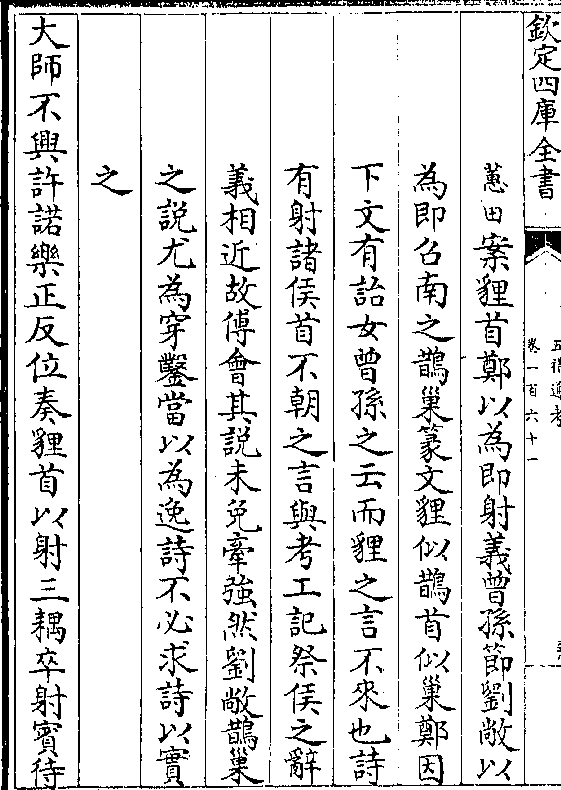 欽定四庫全書
五禮通考
卷一百六十一
蕙田案貍首鄭以為即射義曽孫節劉敞以
為即召南之鵲巢篆文貍似鵲首似巢鄭因
下文有詒女曽孫之云而貍之言不來也詩
有射諸侯首不朝之言與考工記祭侯之辭
義相近故傅會其説未免牽強然劉敞鵲巢
之説尤為穿鑿當以為逸詩不必求詩以實
之
大師不興許諾樂正反位奏貍首以射三耦卒射賓待